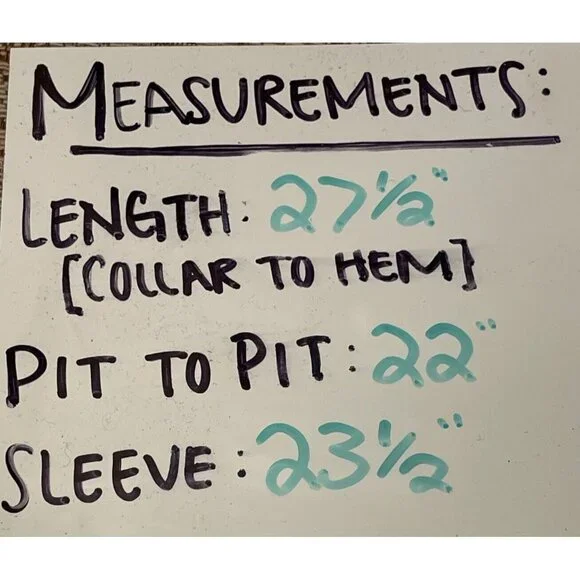 MEASUREMENTS:
LENGTH: 27½"
[COLLAR TO HEM]
PIT TO PIT: 22"
SLEEVE: 23½"